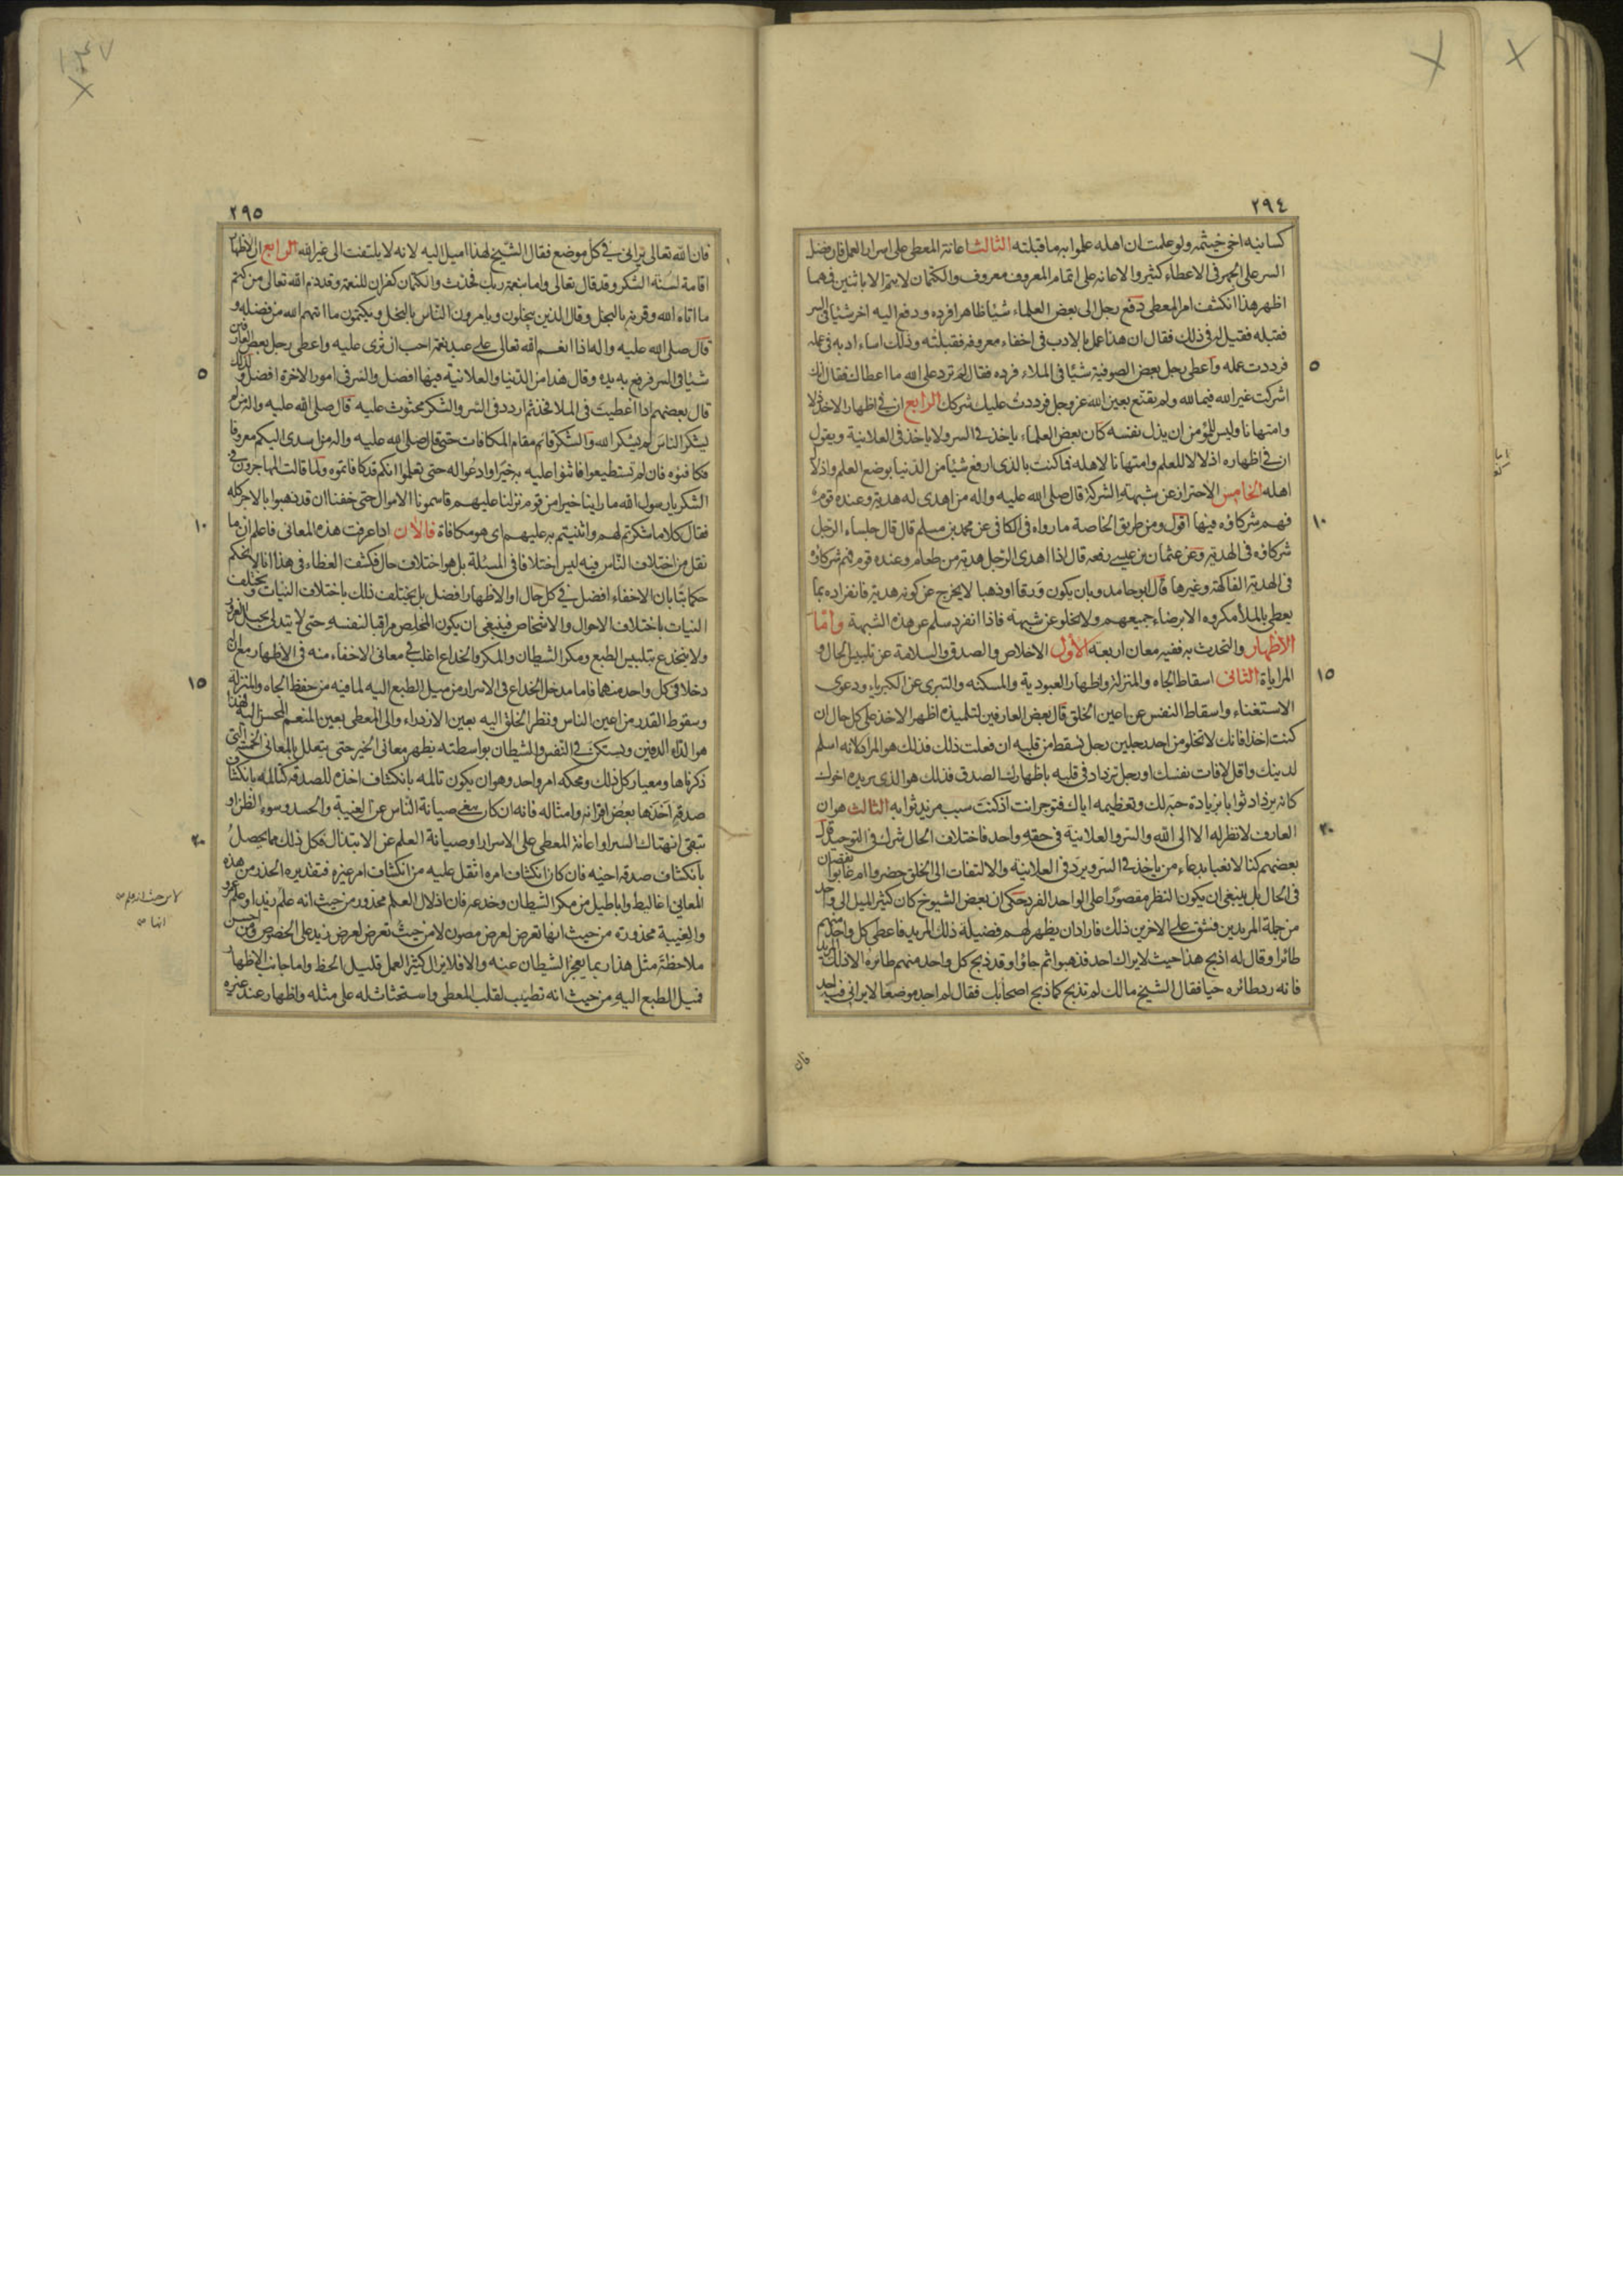 ٢٩٤
كسانيه اخى خيثمه ولو علمت ان اهله علموا به ما قبلته الثالث اعانة المعطى على اسرار العمل فان فضل
السر على الجهر فى الاعطاء كثير والاعانه على اتمام المعروف معروف والكتمان لا يتم الا باثنين فمهما
اظهر هذا انكشف امر المعطى دفع رجل الى بعض العلماء شيئا ظاهرا فرده ودفع اليه اخر شيئا فى السر
فقبله فقيل له فى ذلك فقال ان هذا عمل بالادب فى اخفاء معروفه فقبلته وذلك اساء ادبه فى عمله
فرددت عمله واعطى رجل بعض الصوفية شيئا فى الملاء فرده فقال له لم ترد على الله ما اعطاك فقال انك
اشركت غير الله فيما لله ولم تقنع بعين الله عز وجل فرددت عليك شركك الرابع ان فى اظهار الاخذ ذلا
وامتهانا وليس للمؤمن ان يذل نفسه كان بعض العلماء ياخذ فى السر ولا ياخذ فى العلانية ويقول
ان فى اظهاره اذلالا للعلم وامتهانا لاهله فما كنت بالذى ارفع شيئا من الدنيا بوضع العلم واذلال
اهله الخامس الاحتراز عن شبهة الشركة قال صلى الله عليه واله من اهدى له هدية وعنده قوم
فهم شركاؤه فيها اقول ومن طريق الخاصة ما رواه فى الكافى عن محمد بن مسلم قال قال جلساء الرجل
شركاؤه فى الهدية وعن عثمان بن عيسى رفعه قال اذا اهدى الرجل هدية من طعام وعنده قوم فهم شركاؤه
فى الهدية الفاكهة وغيرها قال ابو حامد وبان يكون ورقا او ذهبا لا يخرج عن كونه هدية فانفراده بما
يعطى بالملأ مكروه الا برضاء جميعهم ولا يخلو عن شبهة فاذا انفرد سلم عن هذه الشبهة واما
الاظهار والتحدث به ففيه معان اربعة الأول الاخلاص والصدق والسلامة عن تلبيس الحال و
المراياة الثانى اسقاط الجاه والمنزلة واظهار العبودية والمسكنه والتبرى عن الكبرياء ودعوى
الاستغناء واسقاط النفس عن اعين الخلق قال بعض العارفين لتلميذه اظهر الاخذ على كل حال ان
كنت اخذا فانك لا تخلو من احد رجلين رجل تسقط من قلبه ان فعلت ذلك فذلك هو المراد لانه اسلم
لدينك واقل لافات نفسك او رجل تزداد فى قلبه باظهارك الصدق فذلك هو الذى يريده اخوك
كانه يزداد ثوابا بزيادة حبه لك وتعظيمه اياك فتوجر انت اذ كنت سبب مزيد ثوابه الثالث هو ان
العارف لا نظر له الا الى الله والسر والعلانية فى حقه واحد فاختلاف الحال شرك فى التوحيد قال
بعضهم كنا لا نعبا بدعاء من ياخذ فى السر ويرد فى العلانية والالتفات الى الخلق حضروا ام غابوا نقصان
فى الحال بل ينبغى ان يكون النظر مقصورا على الواحد الفرد حكى ان بعض الشيوخ كان كثير الميل الى واحد
من جملة المريدين فشق على الاخرين ذلك فاراد ان يظهر لهم فضيلة ذلك المريد فاعطى كل واحد منهم
طائرا وقال له اذبح هذا حيث لا يراك احد فذهبوا ثم جاؤا وقد ذبح كل واحد منهم طائره الا ذلك المريد
فانه رد طائره حيا فقال الشيخ مالك لم تذبح كما ذبح اصحابك فقال لم اجد موضعا لا يرانى فيه احد
فان
٢٩٥
فان الله تعالى يرانى فى كل موضع فقال الشيخ لهذا اميل اليه لانه لا يلتفت الى غير الله الرابع ان الاظهار
اقامة لسنة الشكر وقد قال تعالى واما بنعمة ربك فحدث والكتمان كفران للنعمة وقد ذم الله تعالى من كتم
ما اتاه الله وقرنه بالبخل وقال الذين يبخلون ويامرون الناس بالبخل ويكتمون ما اتيهم الله من فضله و
قال صلى الله عليه واله اذا انعم الله تعالى على عبد نعمة احب ان ترى عليه واعطى رجل بعض العارفين
شيئا فى السر فرفع به يده وقال هذا من الدنيا والعلانية فيها افضل والسر فى امور الاخرة افضل ولذلك
قال بعضهم اذا اعطيت فى الملا فخذ ثم اردد فى السر والشكر محثوث عليه قال صلى الله عليه واله من لم
يشكر الناس لم يشكر الله والشكر قائم مقام المكافات حتى قال صلى الله عليه واله من اسدى اليكم معروفا
فكافئوه فان لم تستطيعوا فاثنوا عليه به خيرا وادعوا له حتى تعلموا انكم قد كافاتموه ولما قالت المهاجرون فى
الشكر يا رسول الله ما راينا خيرا من قوم نزلنا عليهم قاسمونا الاموال حتى خفنا ان قد ذهبوا بالاجر كله
فقال كلاما شكرتم لهم واثنيتم به عليهم اى هو مكافاة فالأن اذا عرفت هذه المعانى فاعلم ان ما
نقل من اختلاف الناس فيه ليس اختلافا فى المسئلة بل هو اختلاف حال فكشف الغطاء فى هذا انا لا نحكم
حكما بتا بان الاخفاء افضل فى كل حال او الاظهار افضل بل يختلف ذلك باختلاف النيات وتختلف
النيات باختلاف الاحوال والاشخاص فينبغى ان يكون المخلص مراقبا لنفسه حتى لا يتدلى بحبل الغرور
ولا ينخدع بتلبيس الطبع ومكر الشيطان والمكر والخداع اغلب فى معانى الاخفاء منه فى الاظهار مع ان له
دخلا فى كل واحد منهما فاما مدخل الخداع فى الاسرار من ميل الطبع اليه لما فيه من حفظ الجاه والمنزلة
وسقوط القدر من اعين الناس ونظر الخلق اليه بعين الازدراء والى المعطى بعين المنعم المحسن اليه فهذا
هو الداء الدفين ويستكن فى النفس والشيطان بواسطته يظهر معانى الخير حتى يتعلل بالمعانى الخمسة التى
ذكرناها ومعيار كل ذلك ومحكه امر واحد وهو ان يكون تالمه بانكشاف اخذه للصدقة كتالمه بانكشاف
صدقة اخذها بعض اقرانه وامثاله فانه ان كان يبغى صيانة الناس عن الغيبة والحسد وسوء الظن او
يتقى انهتاك الستر او اعانة المعطى على الاسرار او صيانة العلم عن الابتذال فكل ذلك مما يحصل
بانكشاف صدقة اخيه فان كان انكشاف امره اثقل عليه من انكشاف امر غيره فتقديره الحذر من هذه
المعانى اغاليط واباطيل من مكر الشيطان وخدعه فان اذلال العلم محذور من حيث انه علم لا من حيث انه علم زيد او علم عمرو
والغيبة محذورة من حيث انها تعرض لعرض مصون لا من حيث تعرض لعرض زيد على الخصوص ومن احسن
ملاحظة مثل هذا ربما يعجز الشيطان عنه والا فلا يزال كثير العمل قليل الحظ واما جانب الاظهار
فميل الطبع اليه من حيث انه تطييب لقلب المعطى واستحثاث له على مثله واظهار عند غيره